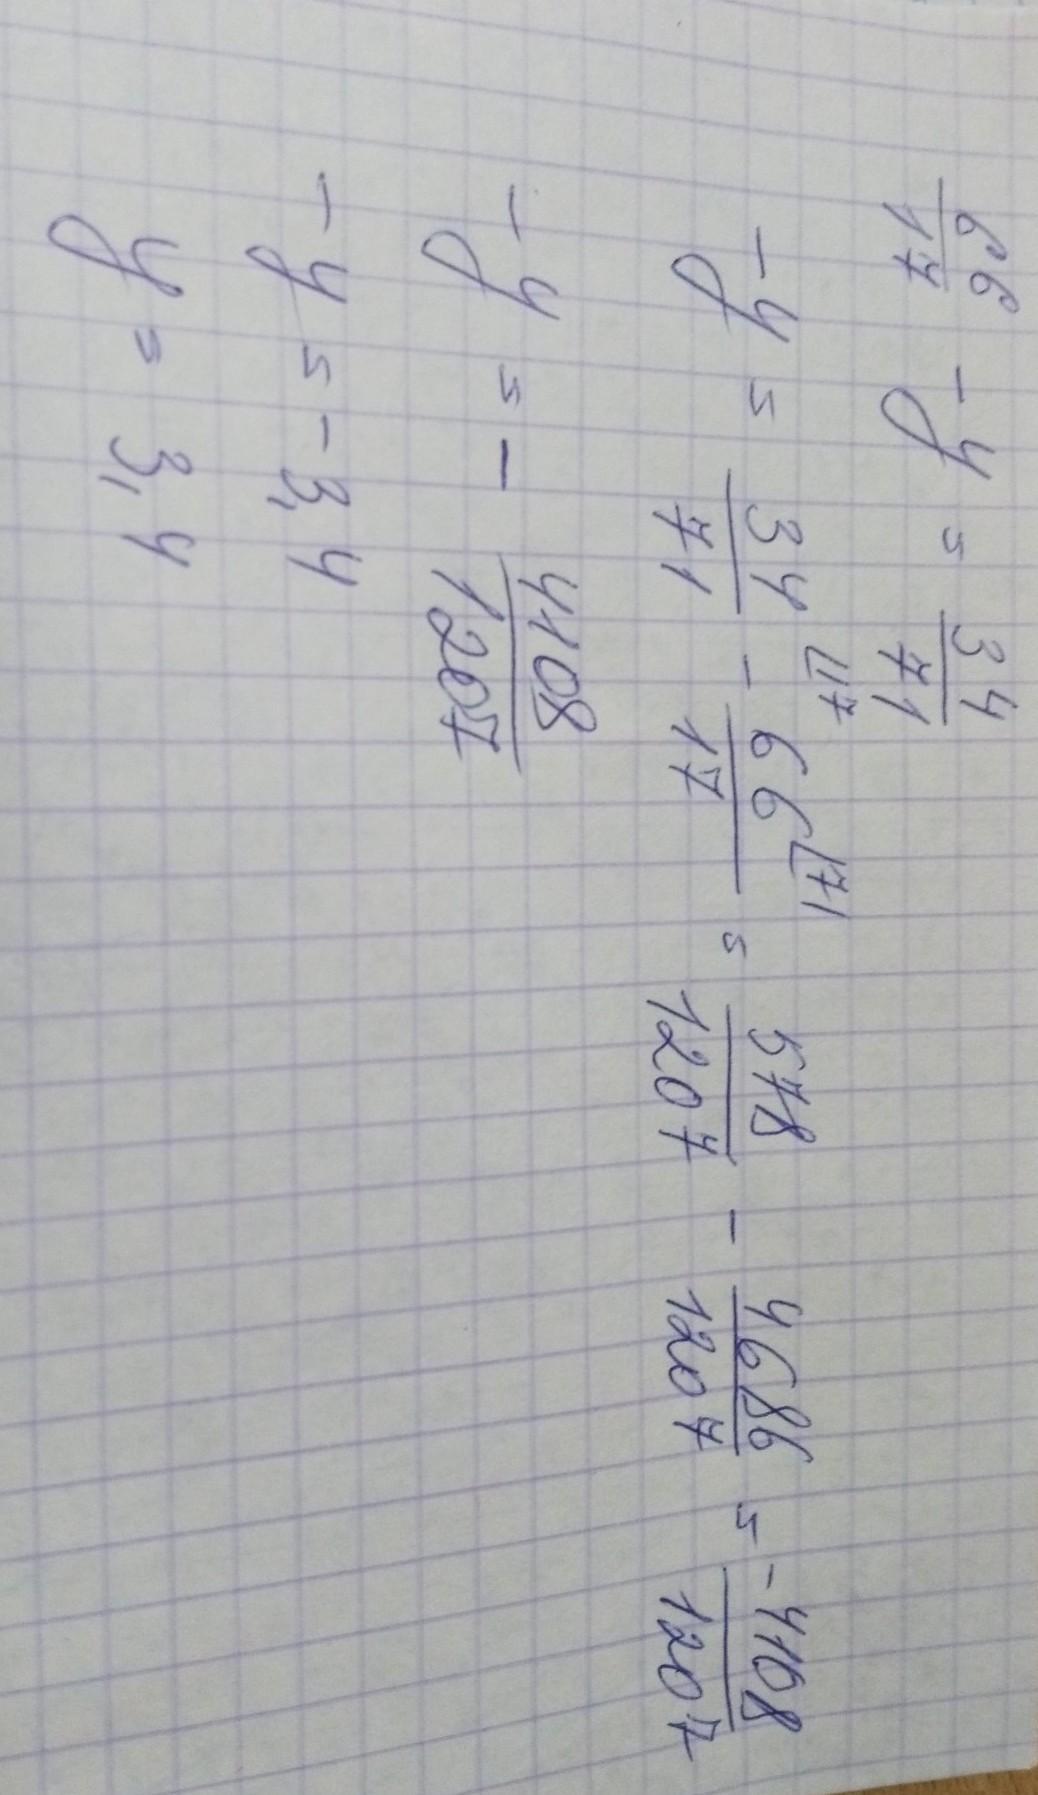 66/17 - y = 34/71
- y = 34/71 ⌊17 - 66/17 ⌊71 = 578/1207 - 4686/1207 = -4108/1207
- y = - 4108/1207
- y = - 3,4
y = 3,4